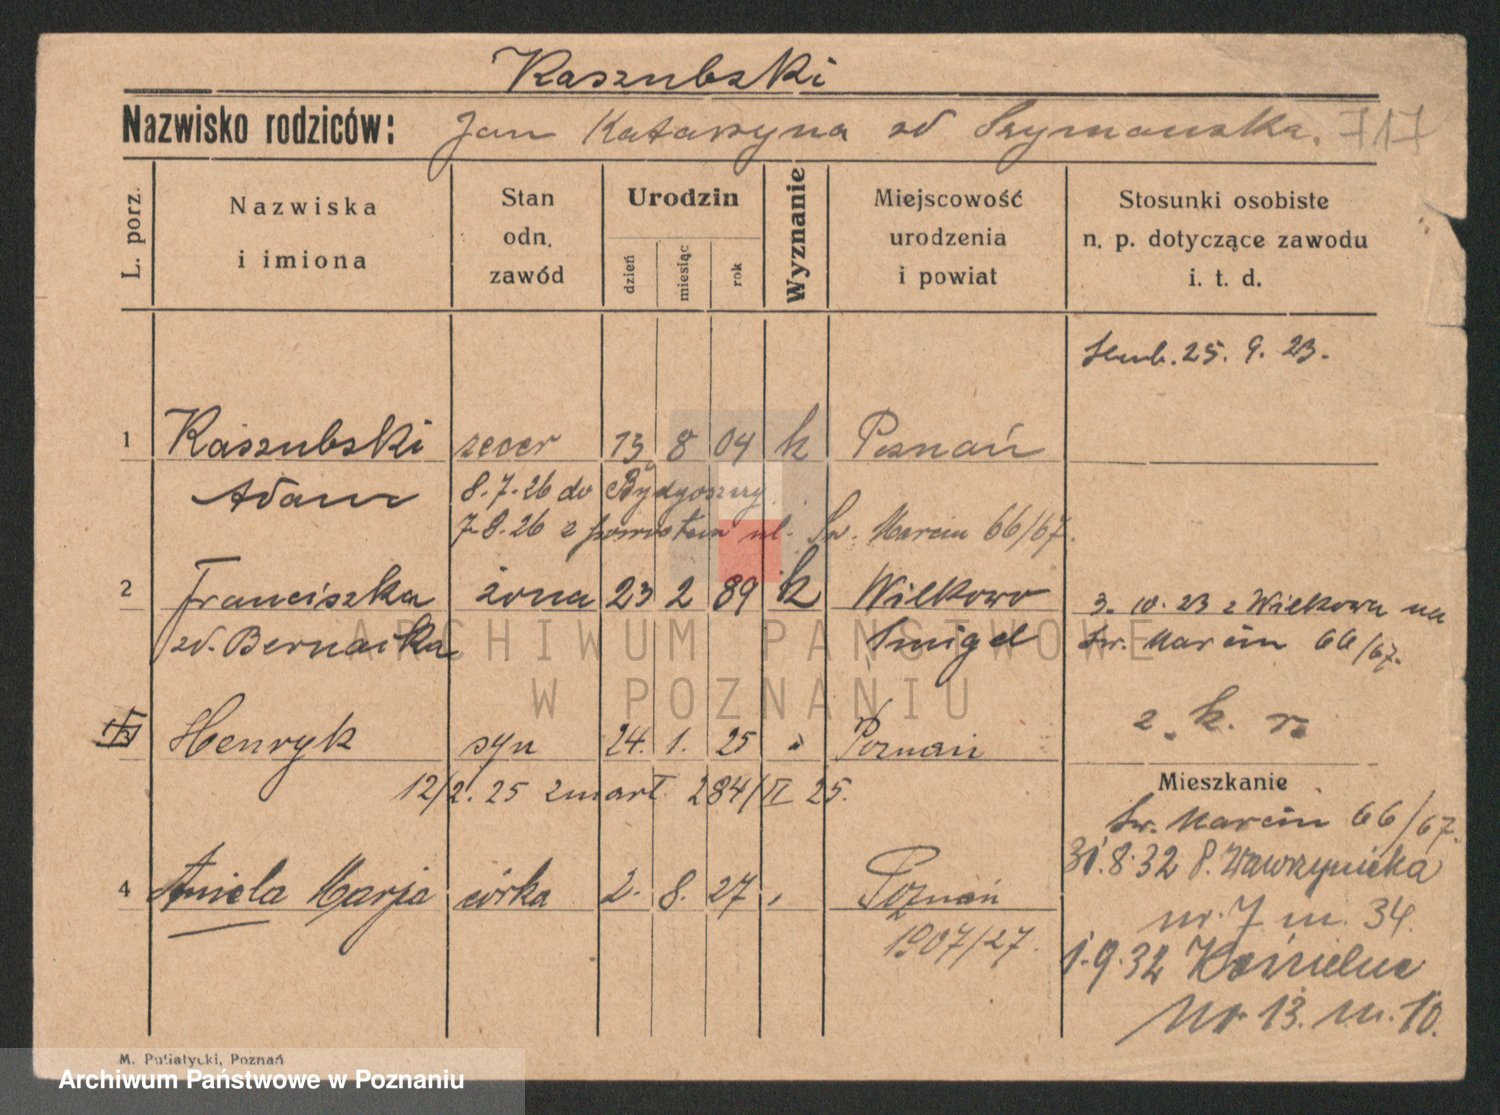 Kaszubski
Nazwisko rodziców: Jan Katarzyna zd Szymańska. 717
L. porz.
Nazwiska
i imiona
Stan
odn.
zawód
Urodzin
dzień
miesiąc
rok
Wyznanie
Miejscowość
urodzenia
i powiat
Stosunki osobiste
n. p. dotyczące zawodu
i. t. d.
25. 9. 23.
1 Kaszubski zecer 13 8 04 k Poznań
Adam 8.7.26 do Bydgoszczy
7.8.26 z powrotem ul. Św. Marcin 66/67.
2 Franciszka żona 23 2 89 k Wilkowo
zd. Bernacka Śmigel
3. 10. 23 z Wilkowa na
Św. Marcin 66/67.
z. k. r.
Henryk syn 24. 1. 25 " Poznań
12/2. 25 zmarł 284/II 25.
Mieszkanie
Św. Marcin 66/67.
31.8.32 P. Wawrzyniaka
nr. 7 m. 34
1.9.32 Kościelna
Nr 13. m. 10.
4 Aniela Marja córka 2. 8. 27 " Poznań
1907/27.
ARCHIWUM PAŃSTWOWE
W POZNANIU
M. Putiatycki, Poznań
Archiwum Państwowe w Poznaniu